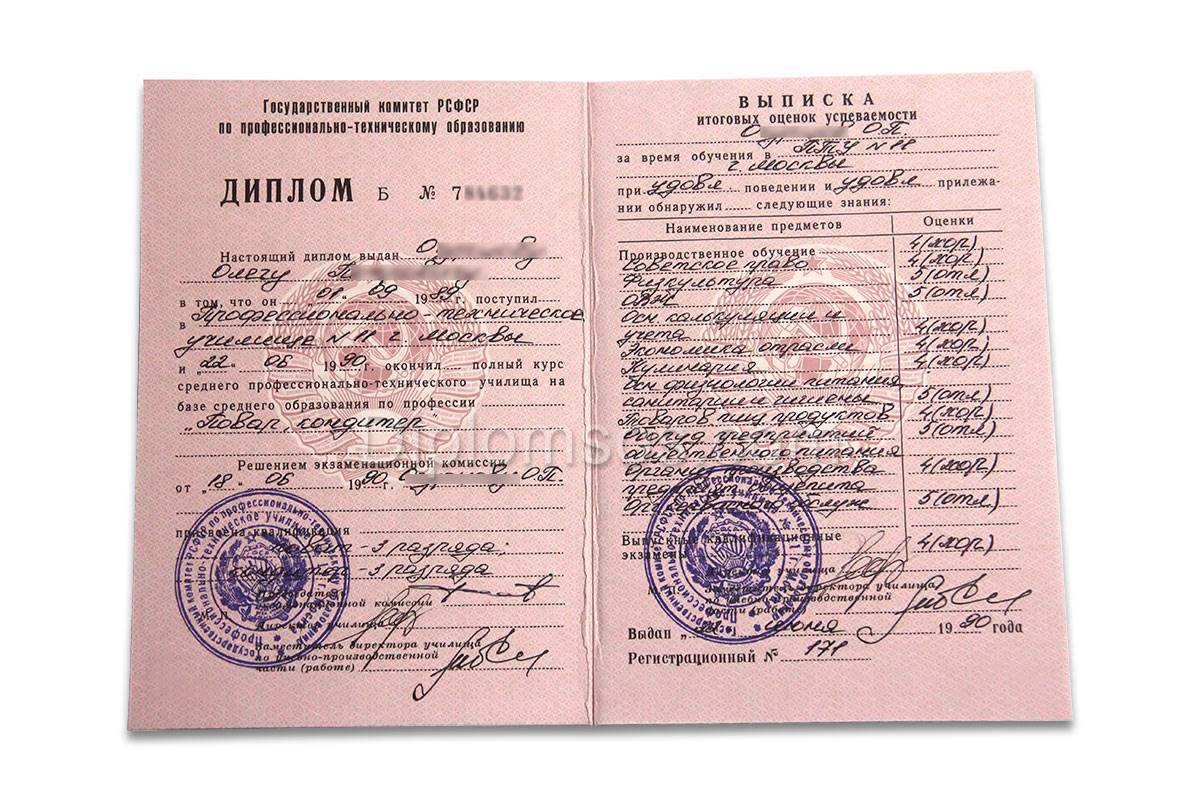 Государственный комитет РСФСР
по профессионально-техническому образованию
ДИПЛОМ Б № 7
Настоящий диплом выдан
Олегу П
в том, что он "01" 09 1989 г. поступил
в Профессионально техническое
училище N 11 г. Москвы
и "22" 06 1990 г. окончил полный курс
среднего профессионально-технического училища на
базе среднего образования по профессии
"Повар, кондитер"
Решением экзаменационной комиссии
от "18" 06 1990 О.П.
присвоена квалификация
повар - 3 разряда;
кондитер - 3 разряда
Председатель
экзаменационной комиссии
Директор училища
Заместитель директора училища
по учебно-производственной
части (работе)
ВЫПИСКА
итоговых оценок успеваемости
О О.П.
за время обучения в ПТУ N 11
г. Москвы
при удовл. поведении и удовл прилежа-
нии обнаружил следующие знания:
Наименование предметов Оценки
Производственное обучение 4 (хор.)
Советское право 4 (хор.)
Физкультура 5 (отл.)
ОВЖ 5 (отл)
осн калькуляции и
учета 4 (хор.)
Экономика отрасли 4 (хор.)
Кулинария 4 (хор.)
осн физиологии питания
санитарии и гигиены 5 (отл)
Товаров пищ продуктов 4 (хор.)
Оборуд предприятий 5 (отл)
общественного питания
Организ производства 4 (хор.)
5 (отл)
Выпускные квалификационные
экзамены 4 (хор.)
Заместитель директора училища
по учебно-производственной
части (работе)
Выдан июня 1990 года
Регистрационный № 171